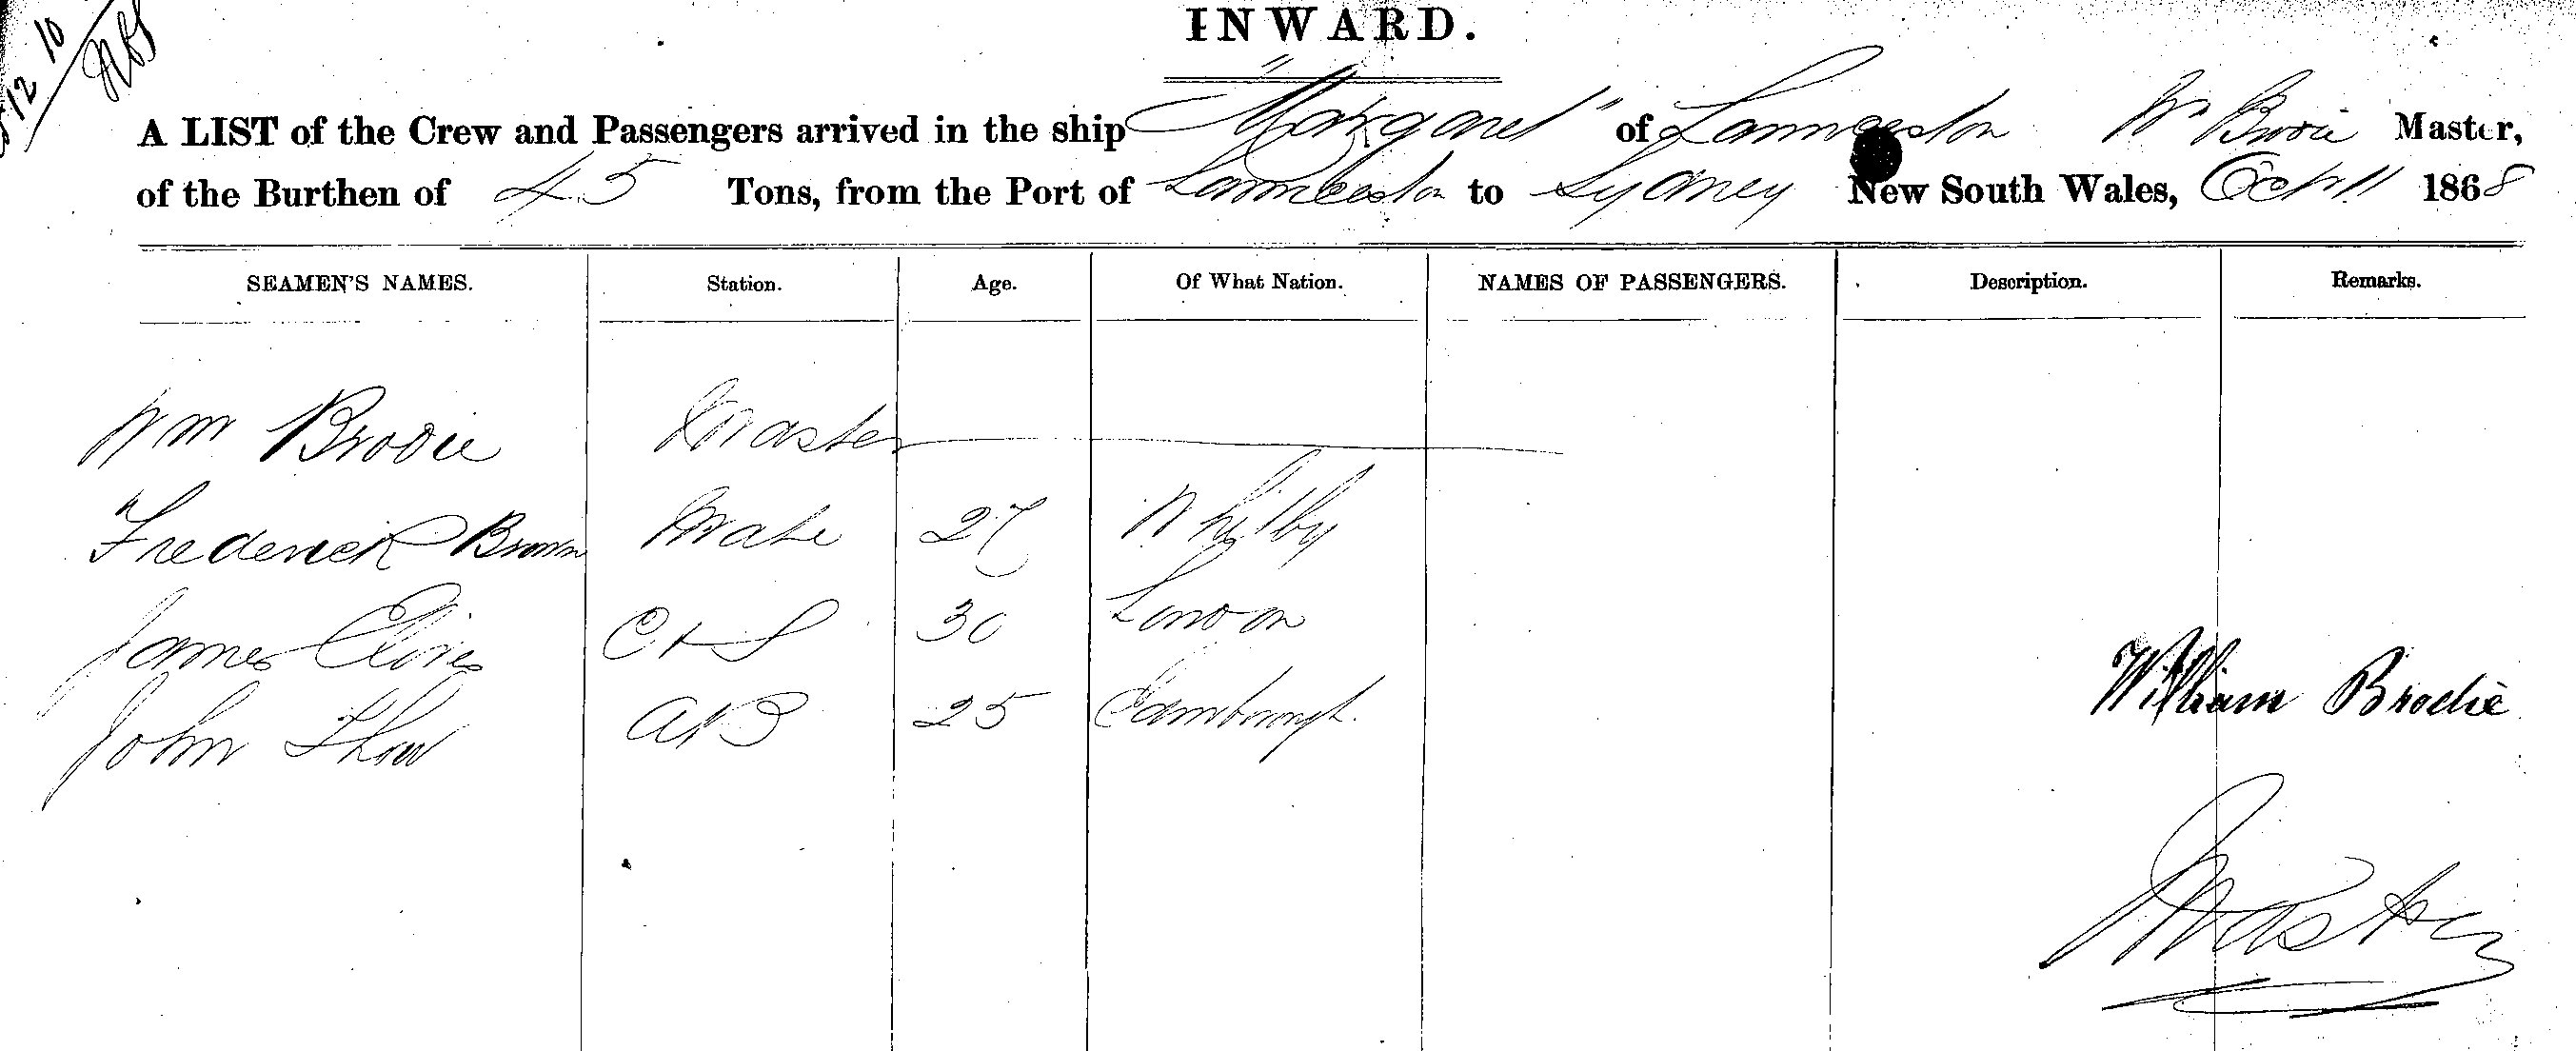 12 10
INWARD.
A LIST of the Crew and Passengers arrived in the ship "Margaret" of Launceston Wm Brodie Master,
of the Burthen of 45 Tons, from the Port of Launceston to Sydney New South Wales, Oct 11 1868
SEAMEN'S NAMES. Station. Age. Of What Nation. NAMES OF PASSENGERS. Description. Remarks.
Wm Brodie Master
Frederick Brown Mate 27 Whitby
James C & S 30 London
John AB 25
William Brodie
Master